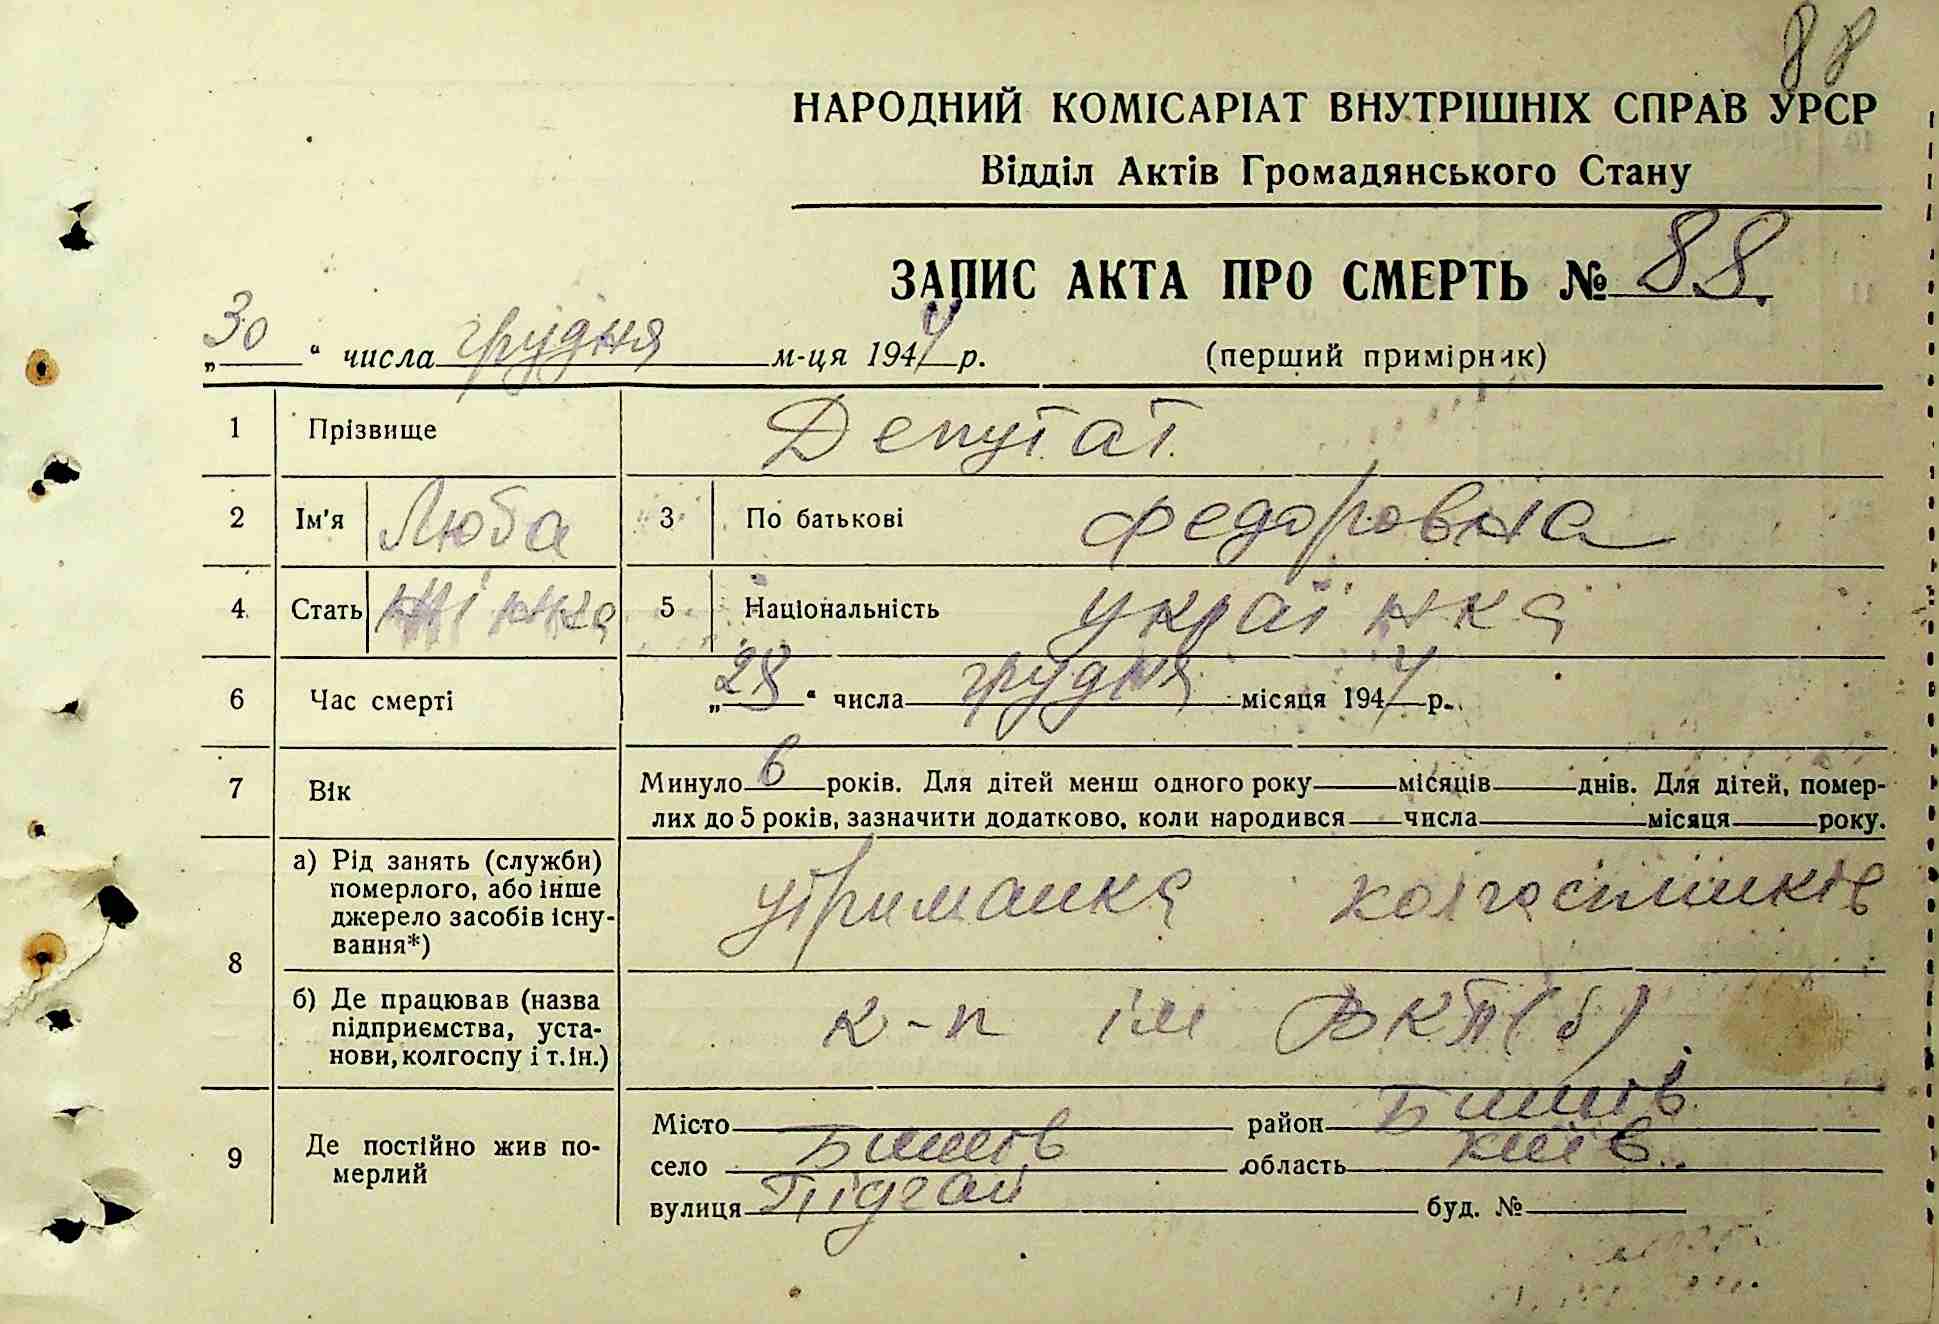 88
НАРОДНИЙ КОМІСАРІАТ ВНУТРІШНІХ СПРАВ УРСР
Відділ Актів Громадянського Стану
ЗАПИС АКТА ПРО СМЕРТЬ № 88.
„30“ числа грудня м-ця 1944 р. (перший примірник)
1 Прізвище Депутат
2 Ім'я Люба 3 По батькові Федоровна
4 Стать жінка 5 Національність українка
6 Час смерті „28“ числа грудня місяця 1944 р.
7 Вік Минуло 6 років. Для дітей менш одного року місяців днів. Для дітей, помер-
лих до 5 років, зазначити додатково, коли народився числа місяця року.
8 а) Рід занять (служби) померлого, або інше джерело засобів існу-вання*) утриманка колгоспників
б) Де працював (назва підприємства, уста-нови, колгоспу і т. ін.) к-п ім ВКП(б)
9 Де постійно жив по-мерлий Місто район Бишів
село Бишів область Київ.
вулиця Підгай буд. №